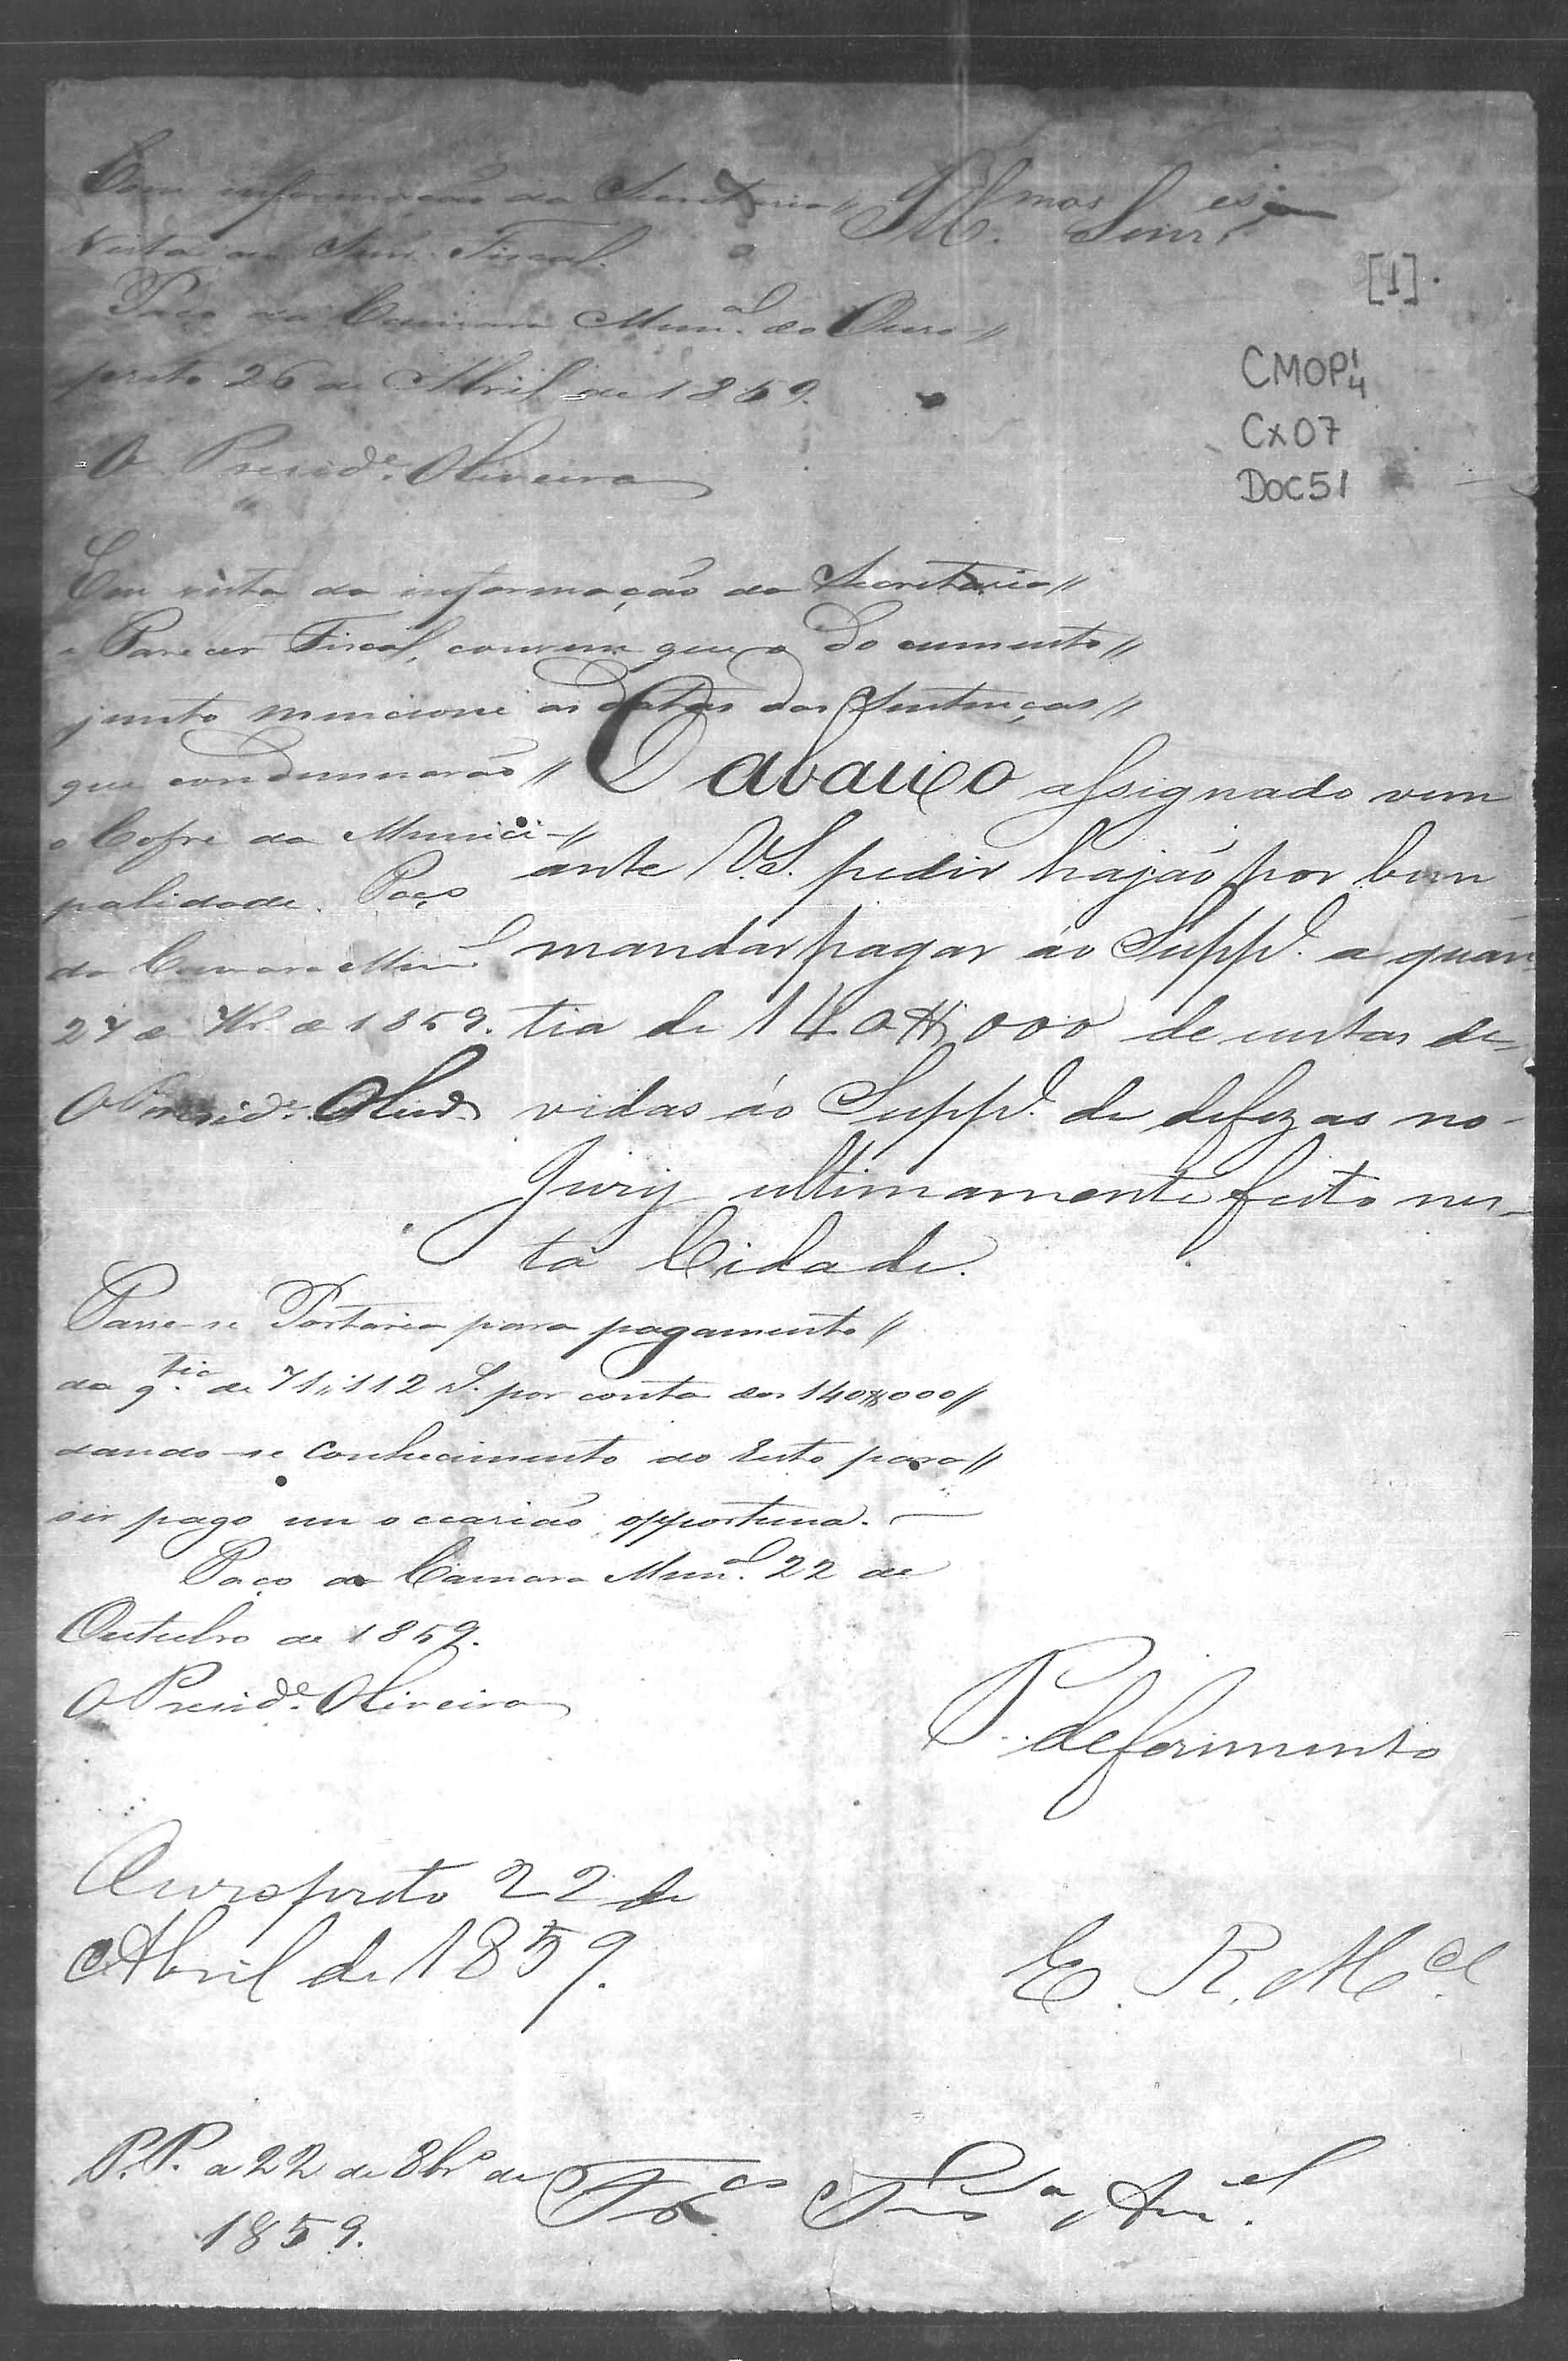 Com informação da Secretaria //
Vista ao Snr. Fiscal.
Paço da Camara Mun.al do Ouro //
preto 26 de Abril de 1859.
O Presid.e Oliveira
Ill.mos Senr.es
[1].
CMOP 1/4
Cx07
Doc51
Em vista da informação da Secretaria //
e Parecer Fiscal, convem que o documento //
junto mencione as datas das Sentenças //
que condemnarão //
o Cofre da Munici- //
palidade. Paço
da Camara Mun.al
27 de Abr. de 1859.
O Presid.e Oliv.ra
O abaixo assignado vem
ante V.S. pedir hajão por bem
mandar pagar ao Supp.e a quan-
tia de 140$000 de custas de-
vidas ao Supp.e de defezas no
Jury ultimamente feito nes-
ta Cidade.
Passe-se Portaria para pagamento //
da q.tia de 71:112 rs. por conta dos 140$000 //
dando-se conhecimento do resto para //
ser pago em occasião opportuna. —
Paço da Camara Mun.al 22 de
Outubro de 1859.
O Presid.e Oliveira
P. deferimento
Ouropreto 22 de
Abril de 1859.
E. R. M.ce
P.P. a 22 de 8br.o de
1859.